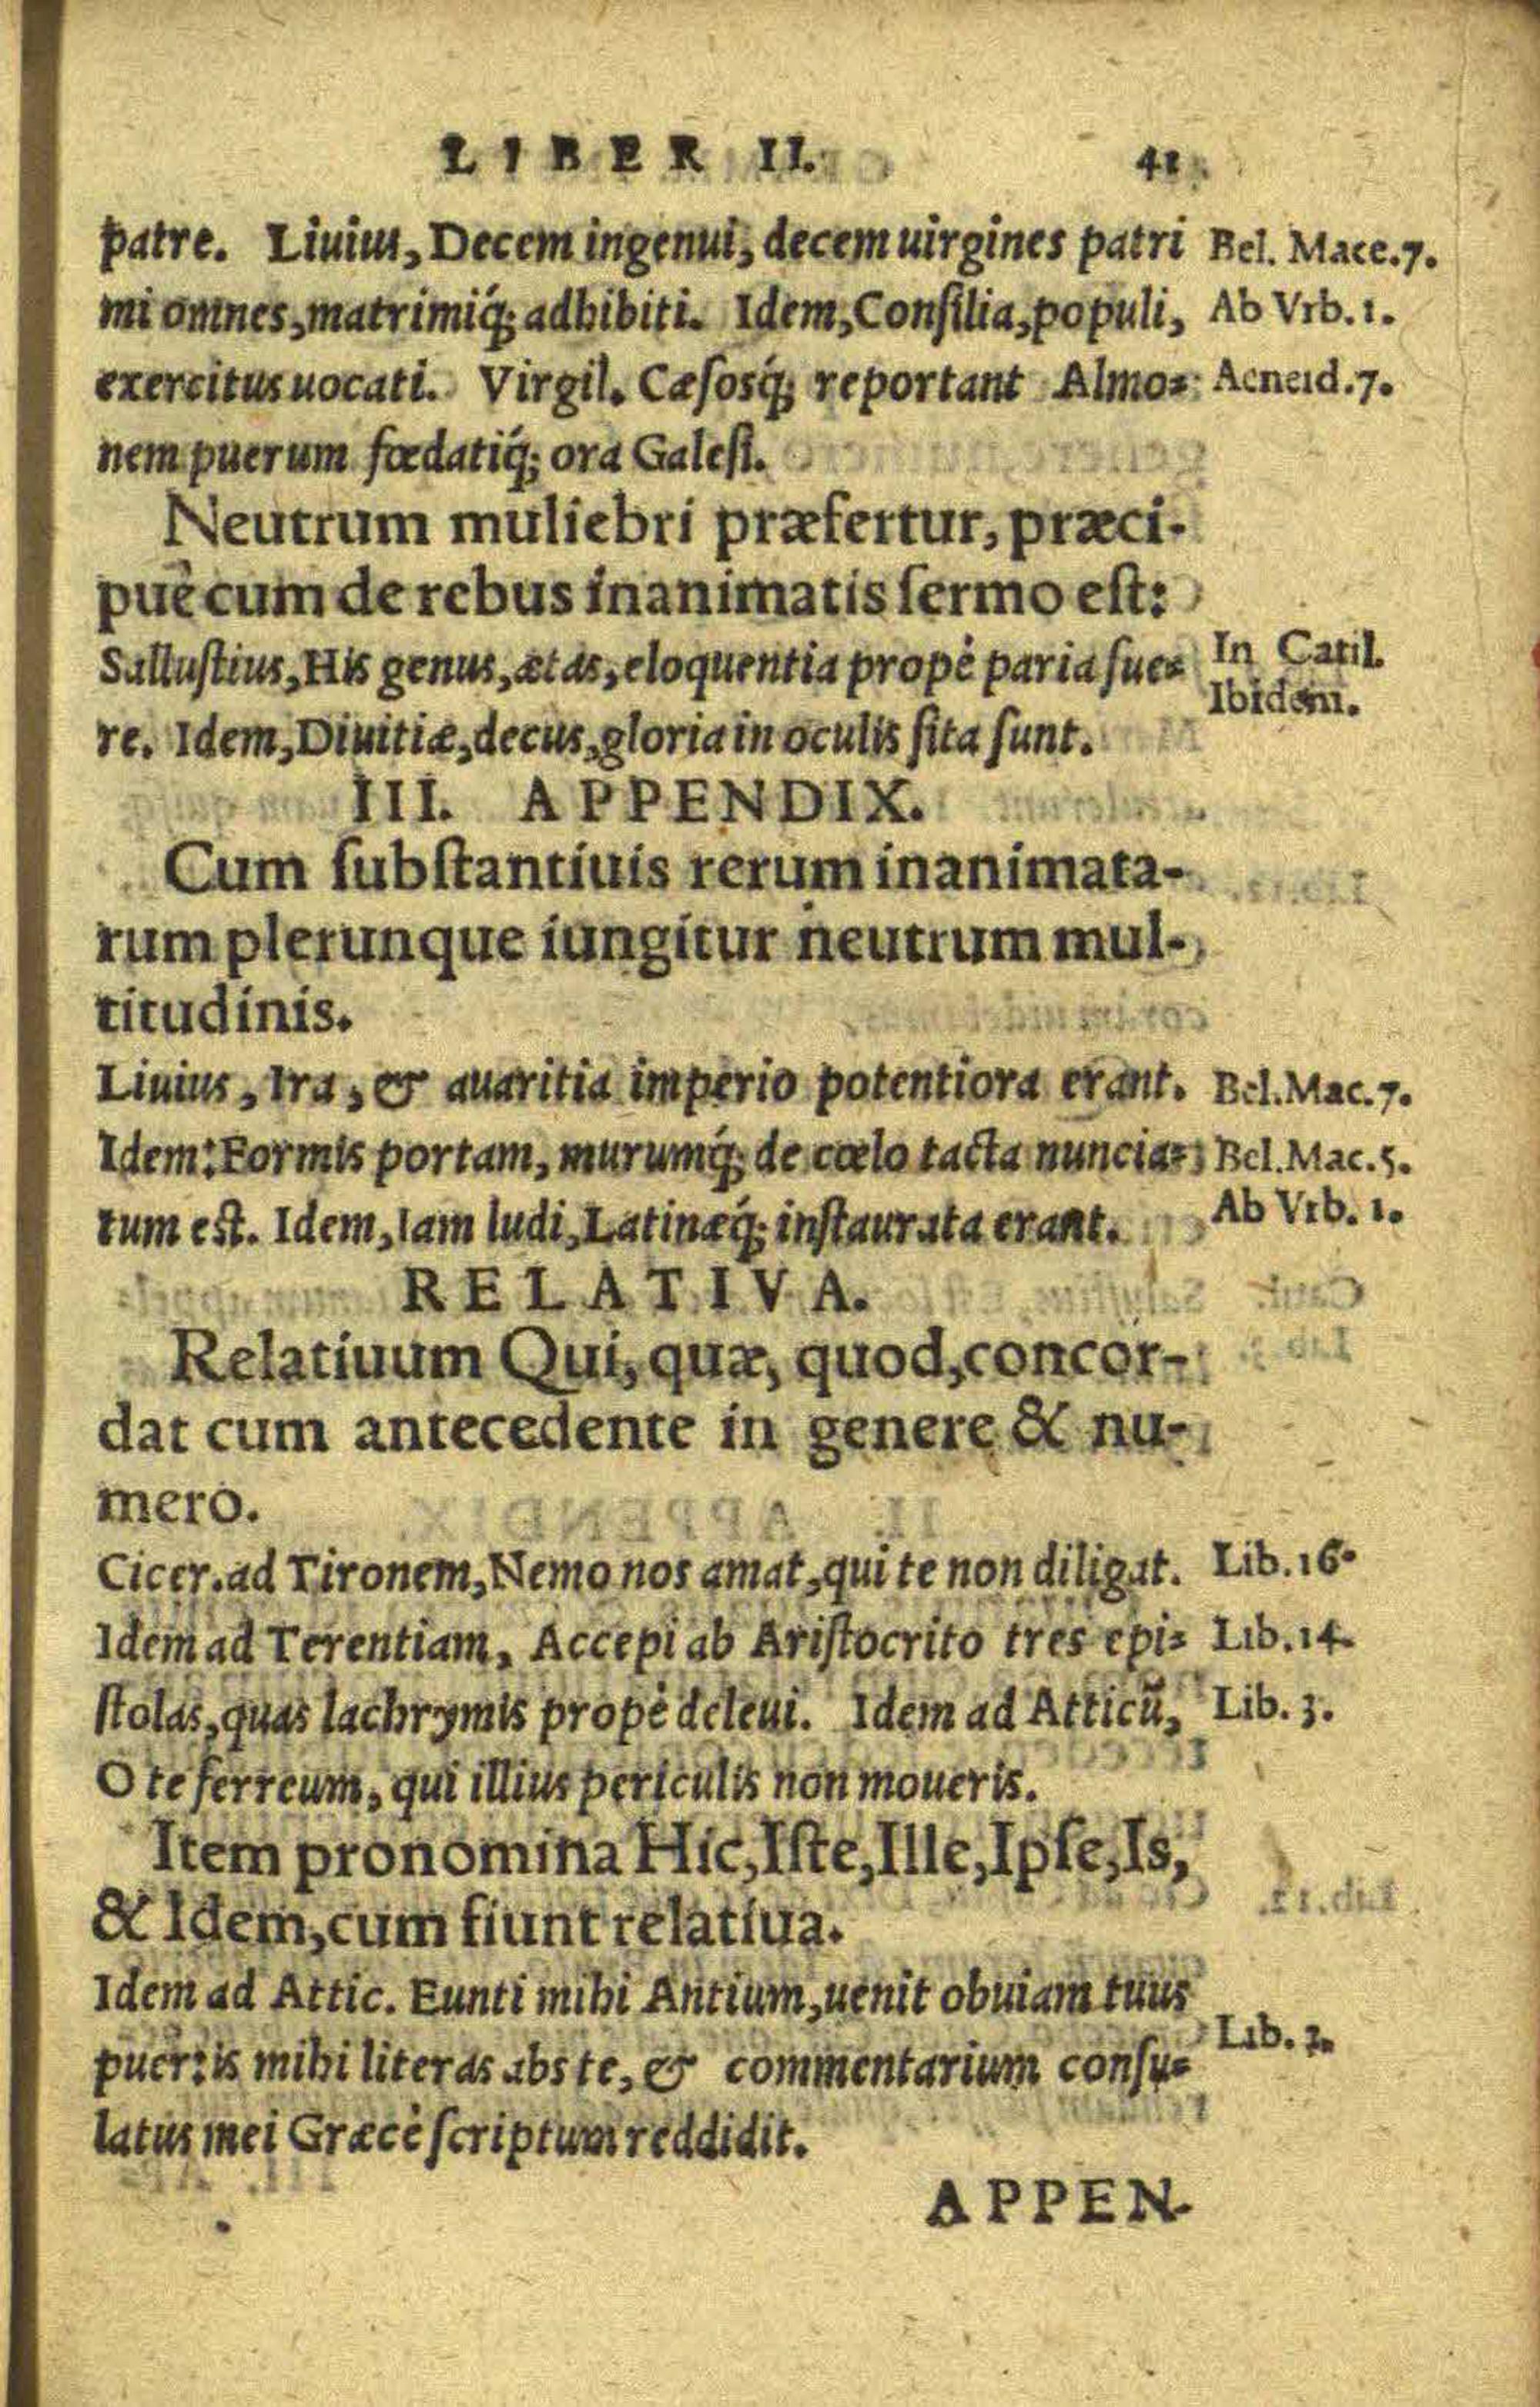 LIBER II. 41
patre. Liuius, Decem ingenui, decem uirgines patri Bel. Mace.7.
mi omnes, matrimiq́; adhibiti. Idem, Consilia, populi, Ab Vrb. 1.
exercitus uocati. Virgil. Cæsosq́; reportant Almo= Aeneid.7.
nem puerum fœdatiq́; ora Galesi.
Neutrum muliebri præfertur, præci-
puè cum de rebus inanimatis sermo est:
Sallustius, His genus, ætas, eloquentia propè paria fue= In Catil.
Ibidem.
re. Idem, Diuitiæ, decus, gloria in oculis sita sunt.
III. APPENDIX.
Cum substantiuis rerum inanimata-
rum plerunque iungitur neutrum mul-
titudinis.
Liuius, Ira, & auaritia imperio potentiora erant. Bel.Mac.7.
Idem: Formis portam, murumq́; de cœlo tacta nuncia= Bel.Mac.5.
tum est. Idem, Iam ludi, Latinæq́; instaurata erant. Ab Vrb. 1.
RELATIVA.
Relatiuum Qui, quæ, quod, concor-
dat cum antecedente in genere & nu-
mero.
Cicer. ad Tironem, Nemo nos amat, qui te non diligat. Lib.16.
Idem ad Terentiam, Accepi ab Aristocrito tres epi= Lib.14.
stolas, quas lachrymis propè deleui. Idem ad Atticũ, Lib. 3.
O te ferreum, qui illius periculis non moueris.
Item pronomina Hic, Iste, Ille, Ipse, Is,
& Idem, cum fiunt relatiua.
Idem ad Attic. Eunti mihi Antium, uenit obuiam tuus
puer: is mihi literas abs te, & commentarium consu= Lib. 2.
latus mei Græcè scriptum reddidit.
APPEN-